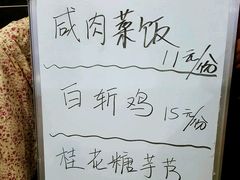 咸肉菜饭
11元/份
白斩鸡
15元/份
桂花糖芋艿